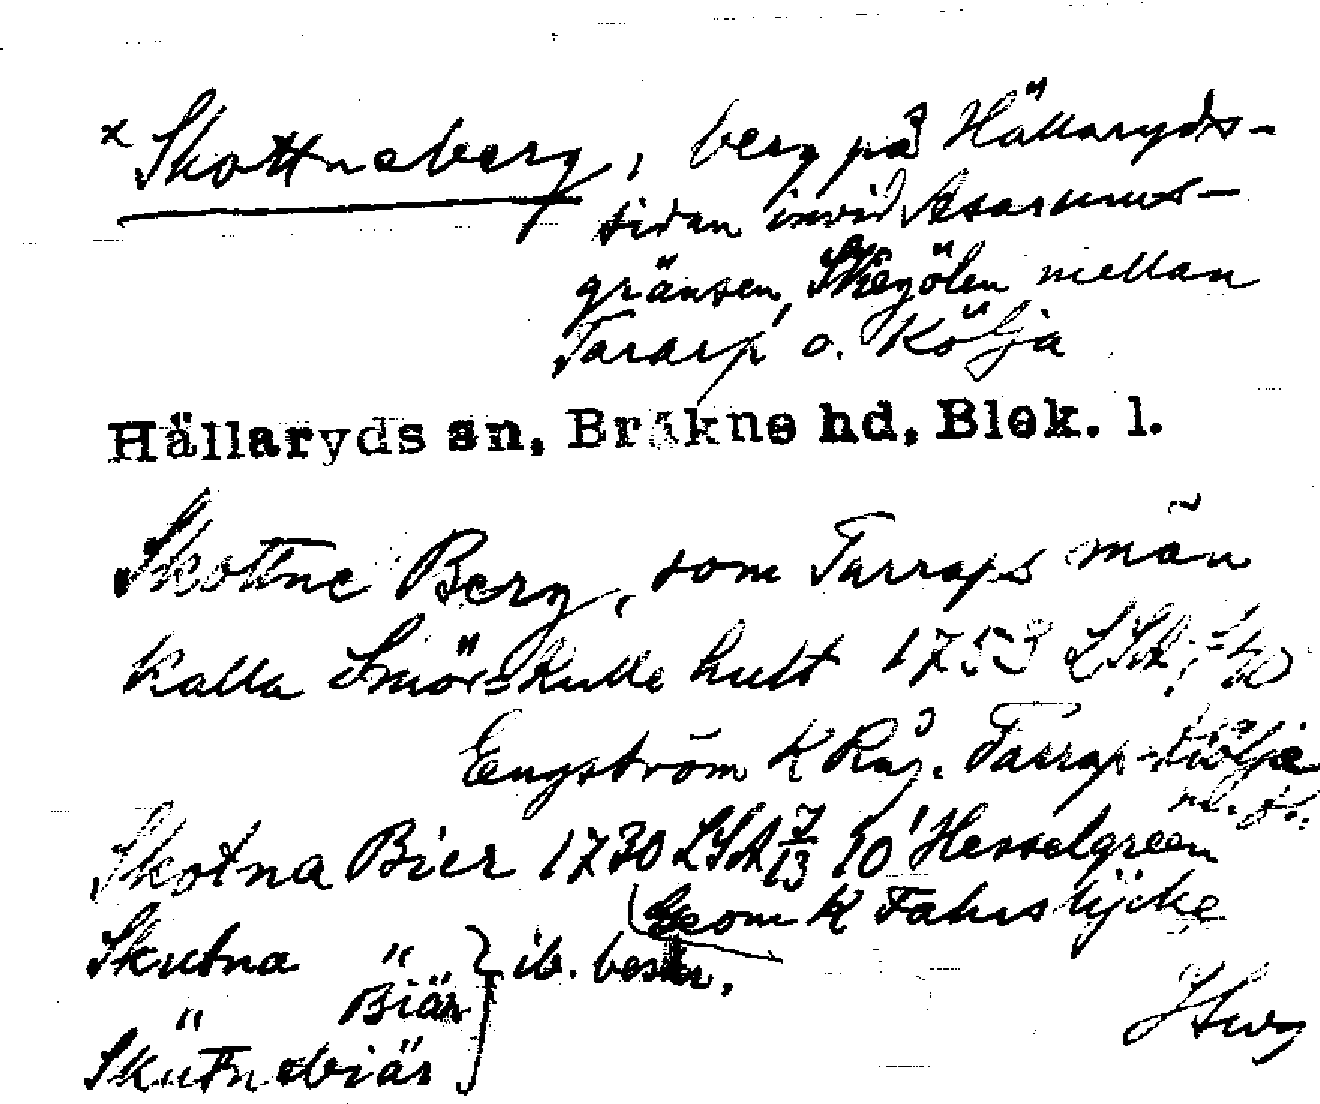 x Skottneberg, berg på Hällaryds-
sidan invid Asarums-
gränsen, Skegölen mellan
Tararp o. Kölja
Hällaryds sn, Bräkne hd, Blek. l.
Skottne Berg, som Tarraps män
kalla Smörskulle hult 1753 LSA
Engström K Råg. Tarrap
Skotna Bier 1730 LSA 7/13 10' Hesselgreen
Geom K Fahrslÿcke
Skutna " } ib. beskr.
" Biär
Skutnebiär